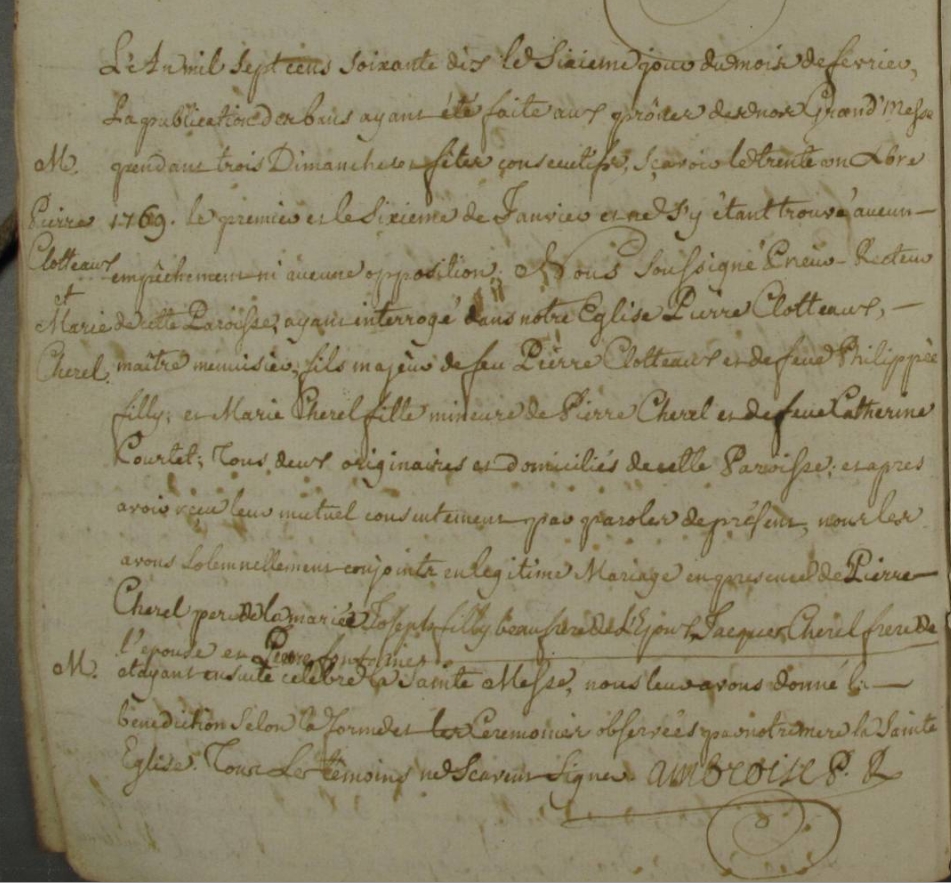 L'An mil sept cens soixante dix le Sixieme jour du mois de fevrier,
La publication des bans ayant été faite aux prônes de nos Grand'Messe
M. pendant trois Dimanches et fêtes consecutifs, sçavoir le trente un Xbre
Pierre 1769. le premier et le Sixieme de Janvier et ne s'y étant trouvé aucun
Clotteaux empêchement ni aucune opposition; Nous Soussigné Prieur-Recteur
et
Marie de cette Paroisse, ayant interrogé dans notre Eglise Pierre Clotteaux,
Cherel, maître menuisier, fils majeur de feu Pierre Clotteaux et de feue Philippe
filly; et Marie Cherel fille mineure de Pierre Cherel et de feue Catherine
Courtet; Tous deux originaires et domiciliés de cette Paroisse; et apres
avoir reçu leur mutuel consentement par paroles de présent, nous les
avons Solemnellement conjoints en legitime Mariage en presence de Pierre
Cherel pere de la mariée Joseph filly beaufrere de L'Epoux, Jacques Cherel frere de
l'epouse et Pierre
M. et ayant ensuite célébré la Sainte Messe, nous leur avons donné la
bénédiction Selon la forme et les Ceremonies observées par notre mere la Sainte
Eglise. Tous Les témoins ne Scavent Signer. ambroise P. R